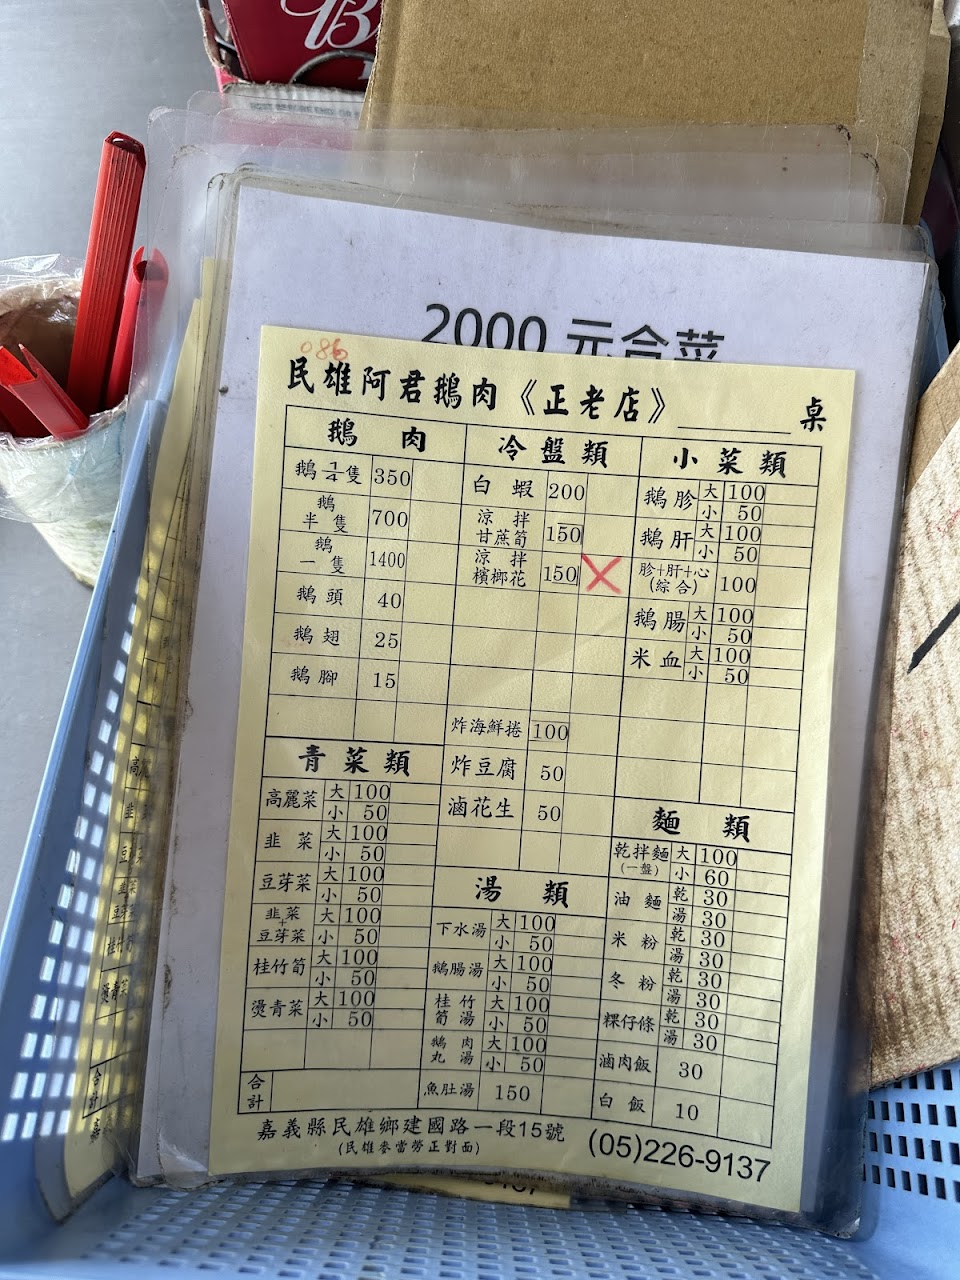 B
2000 元合菜
086
民雄阿君鵝肉《正老店》______桌
鵝 肉
鵝 1/4 隻 350
鵝半隻 700
鵝一隻 1400
鵝頭 40
鵝翅 25
鵝腳 15
冷盤類
白蝦 200
涼拌甘蔗筍 150
涼拌檳榔花 150 X
炸海鮮捲 100
炸豆腐 50
滷花生 50
小菜類
鵝胗 大 100
小 50
鵝肝 大 100
小 50
胗+肝+心(綜合) 100
鵝腸 大 100
小 50
米血 大 100
小 50
青菜類
高麗菜 大 100
小 50
韭菜 大 100
小 50
豆芽菜 大 100
小 50
韭菜+豆芽菜 大 100
小 50
桂竹筍 大 100
小 50
燙青菜 大 100
小 50
合計
湯類
下水湯 大 100
小 50
鵝腸湯 大 100
小 50
桂竹筍湯 大 100
小 50
鵝肉丸湯 大 100
小 50
魚肚湯 150
麵類
乾拌麵(一盤) 大 100
小 60
油麵 乾 30
湯 30
米粉 乾 30
湯 30
冬粉 乾 30
湯 30
粿仔條 乾 30
湯 30
滷肉飯 30
白飯 10
嘉義縣民雄鄉建國路一段15號
(民雄麥當勞正對面)
(05)226-9137